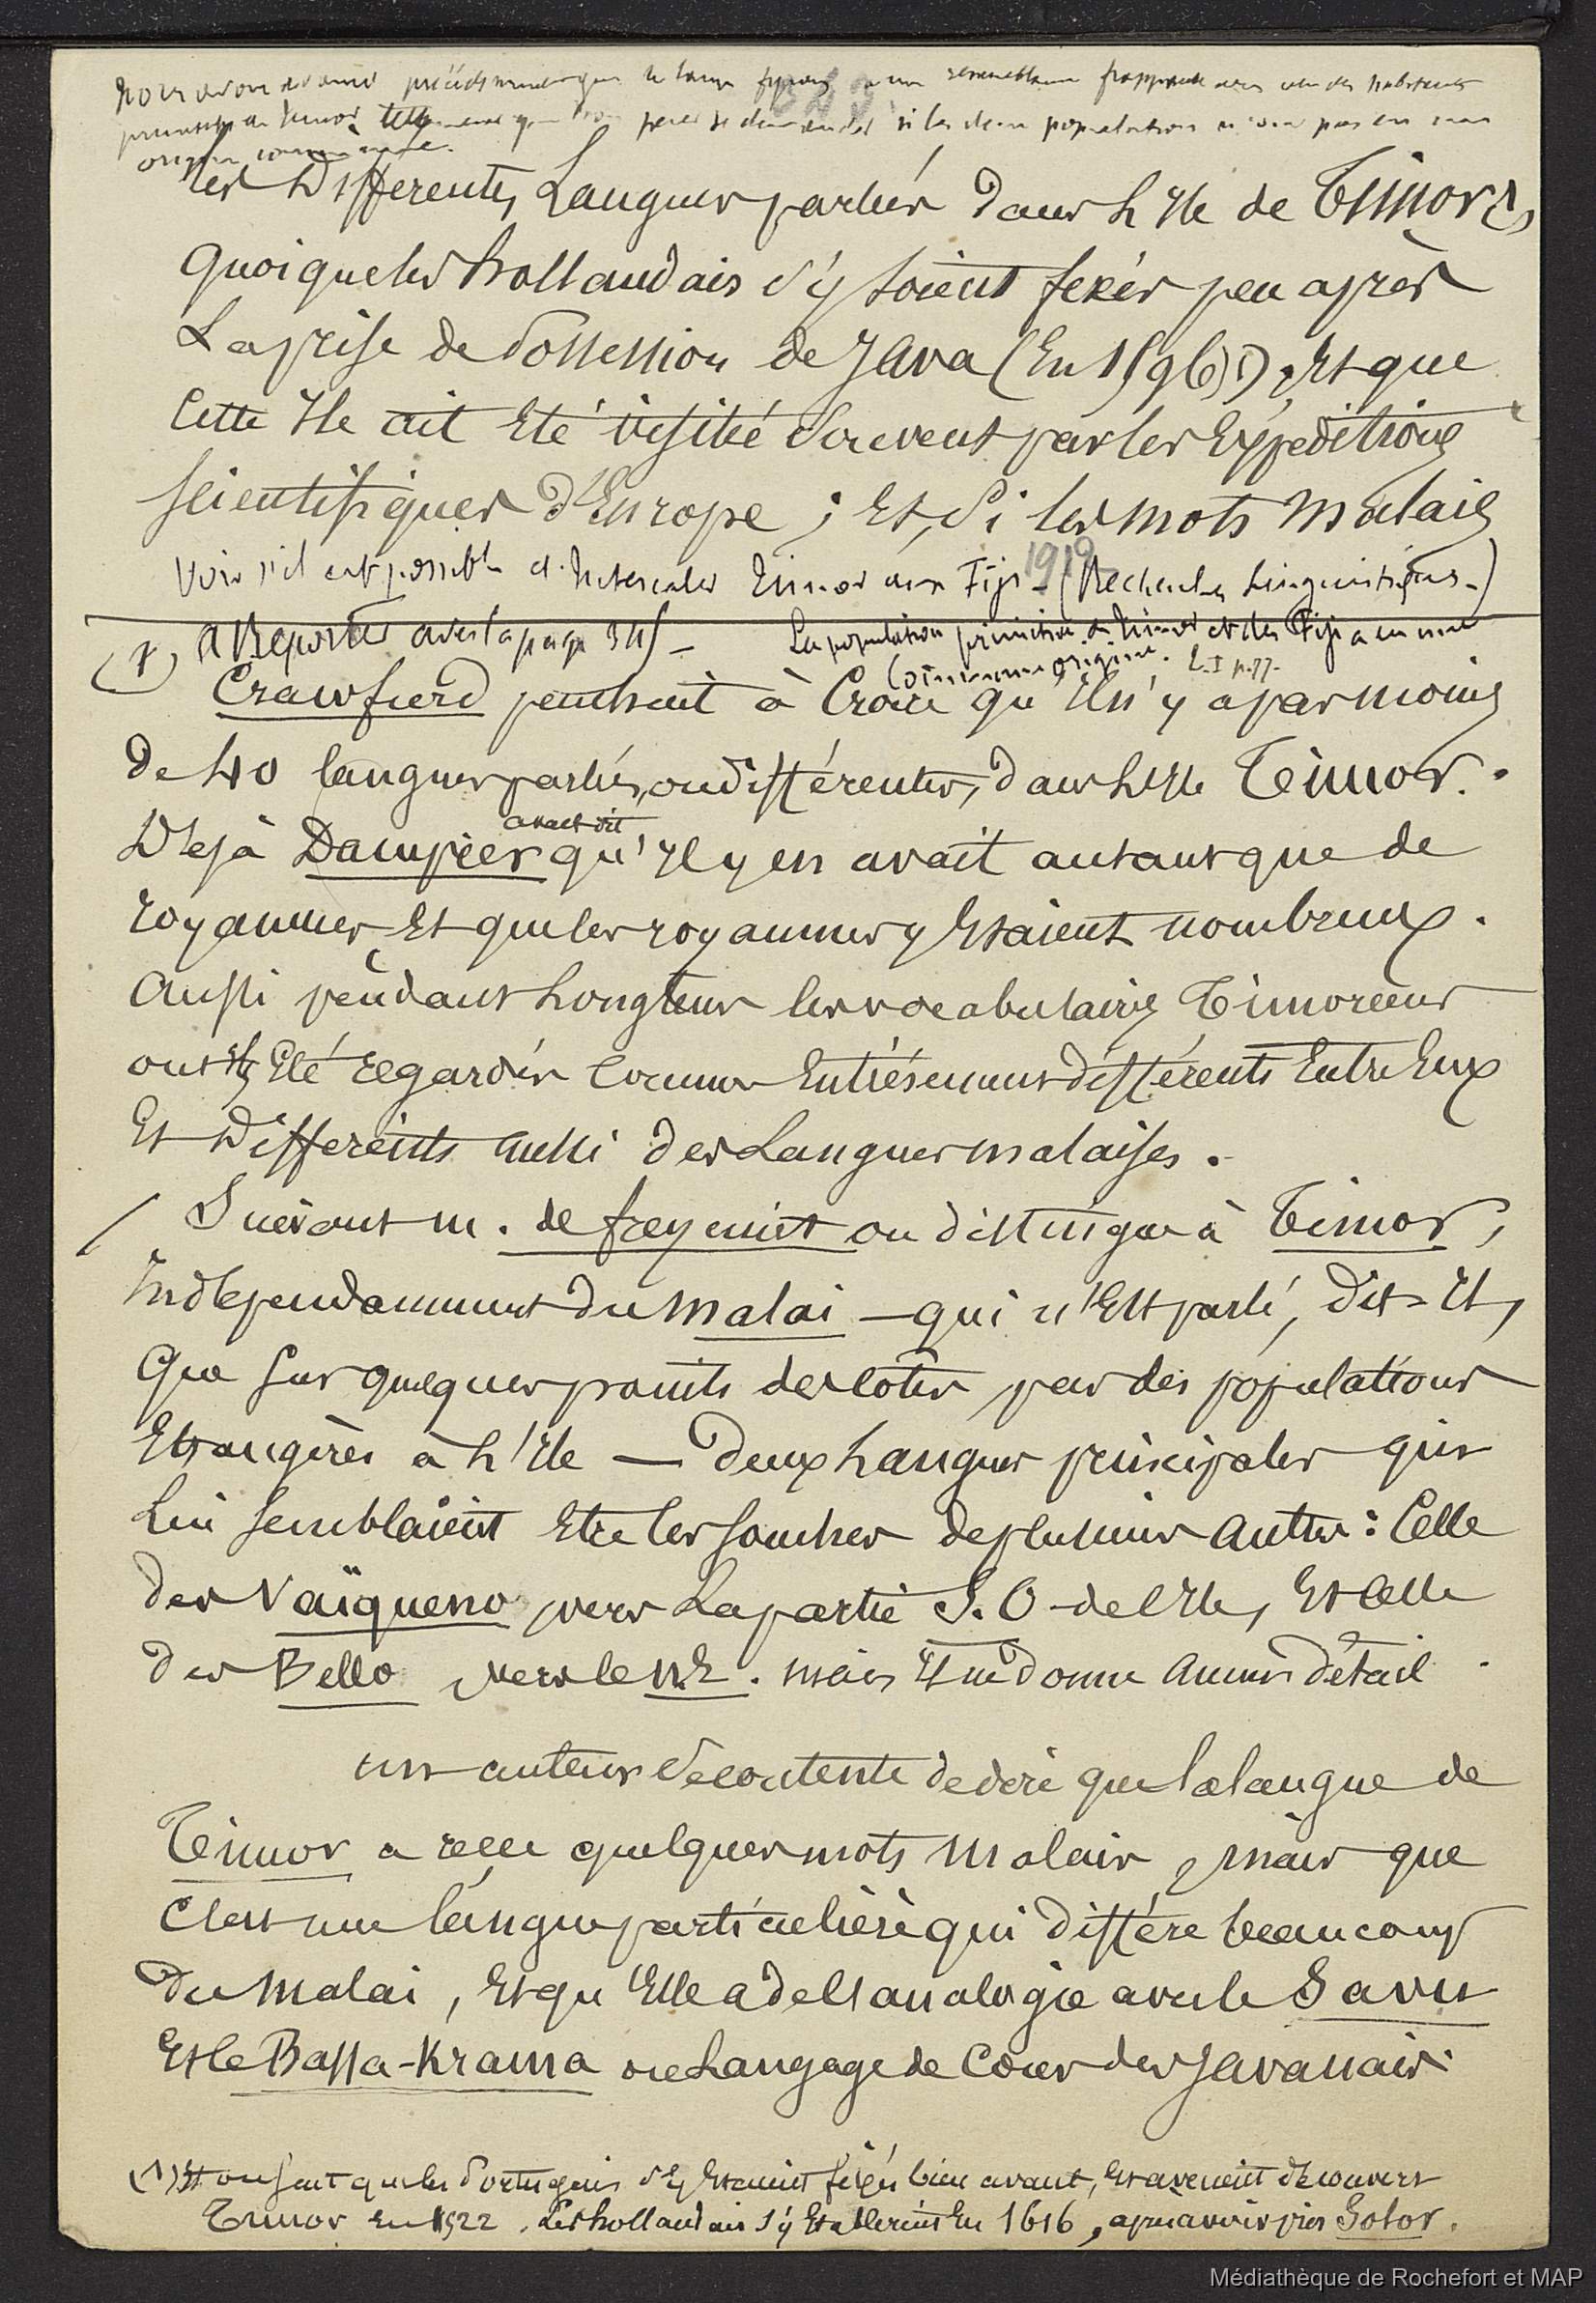 nous avons avancé précédemment que la langue a une ressemblance frappante avec celle des habitants
primitifs de Timor, tellement que l'on peut se demander si les deux populations n'ont pas eu une
origine commune.
les Differentes Langues parlées dans L'Ile de Timor
quoique les hollandais s'y soient fixés peu après
La prise de Possession de Java (En 1596)(1), Et que
Cette Ile ait Eté visitée Souvent par les Expeditions
scientifiques d'Europe ; Et, Si les mots malais
Voir s'il est possible d'Intercaler Timor aux Fiji - (Recherches Linguistiques -)
1919
(1) A Reporter avec la page 345 -
La population primitive de Timor et des Fiji a eu une
Commune origine. t. I p. 77.
Crawfurd penchait à Croire qu'Il n'y a pas moins
de 40 langues parlées, ou différentes, dans L'Ile Timor.
Déjà Dampier avait dit qu'Il y en avait autant que de
royaumes Et que les royaumes y Etaient nombreux.
Aussi pendant Longtems les vocabulaires Timoriens
ont Ils Eté regardés Comme Entièrement différents Entre Eux
Et Differents aussi des Langues malaises.
/ Suivant m. de freycinet on distingue à Timor,
Indépendamment du malai — qui n'Est parlé, dit-Il,
que sur quelques points des côtes par des populations
Etrangères à L'Ile — Deux Langues principales qui
Lui semblaient Etre les souches de plusieurs Autres : Celle
des Vaïqueno vers La partie S.O de l'Ile, Et Celle
des Bello vers le N.E. mais Il ne donne Aucun détail
un auteur Se contente de dire que la langue de
Timor a reçu quelques mots malais, mais que
C'est une langue particulière qui diffère beaucoup
du malai, Et qu'Elle a de l'analogie avec le Savu
Et le Bassa-Krama ou Langage de Cour des Javanais.
(1) Et on sait que les Portugais s'y Etaient fixés bien avant, Et avaient découvert
Timor En 1522. Les hollandais s'y Etablirent En 1616, après avoir pris Solor.
Médiathèque de Rochefort et MAP